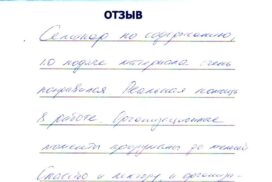 ОТЗЫВ
Семинар по содержанию,
по подаче материала очень
понравился. Реальная помощь
в работе. Организационные
моменты продуманы до мелочей
Спасибо и лектору, и организ-